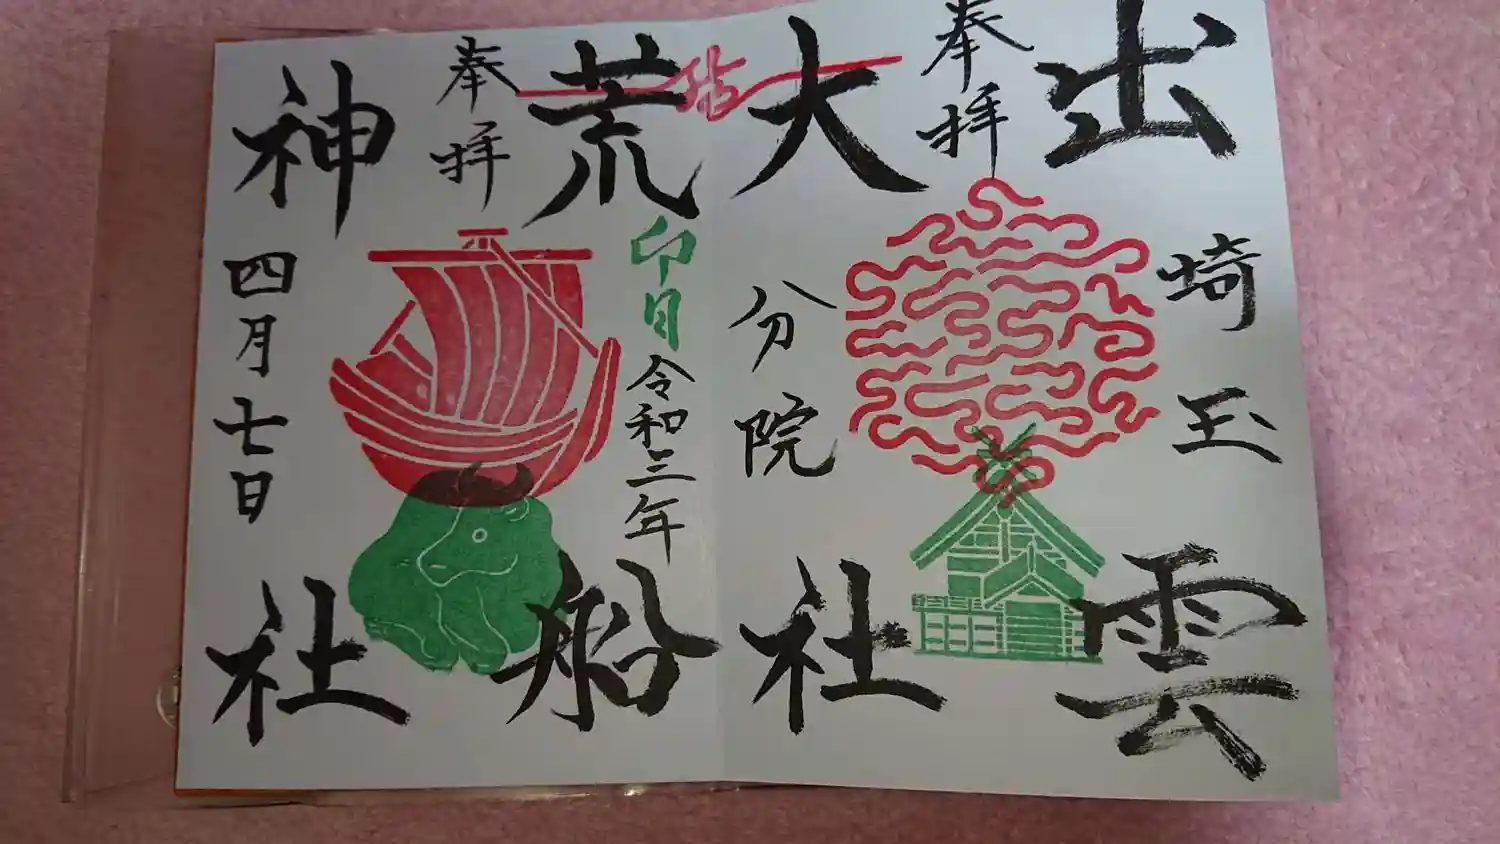 出雲
埼玉
奉拝
大社
分院
結
荒船
卯日
令和三年
奉拝
神社
四月七日